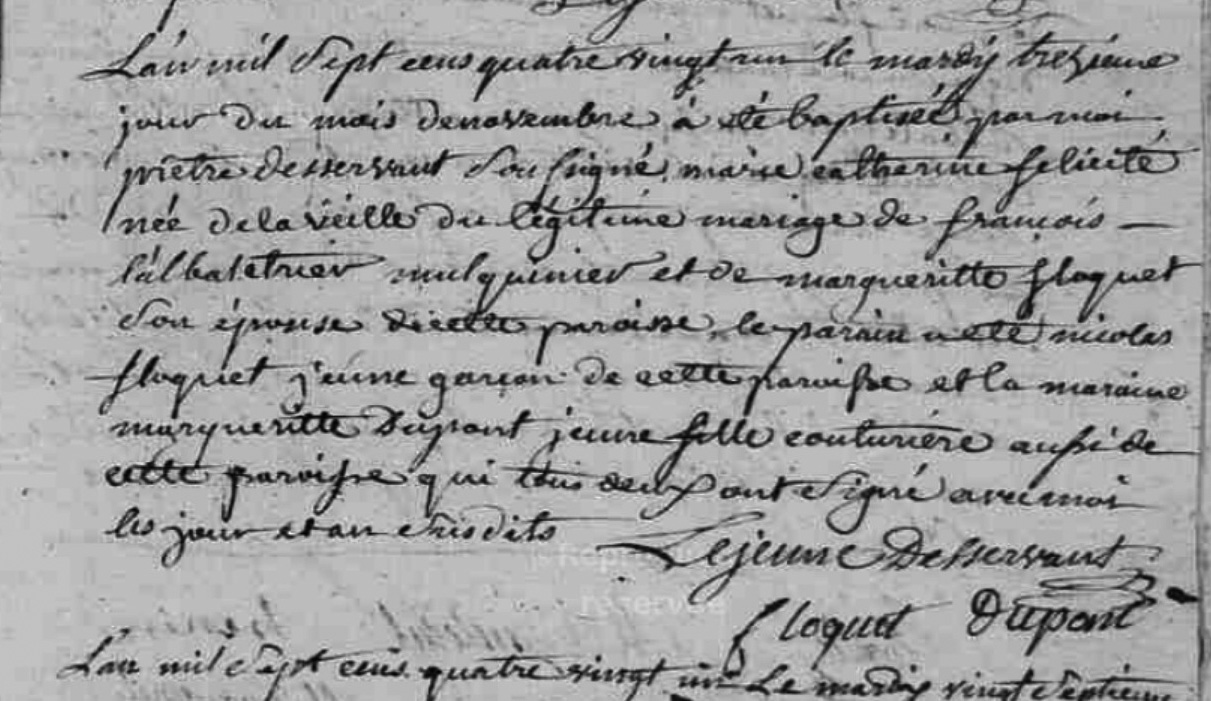 L'an mil sept cens quatre vingt un le mardy trezieme
jour du mois de novembre à été baptisée par moi
prêtre desservant sousigné marie catherine felicité
née de la veille du légitime mariage de françois —
l'albaletrier mulquinier et de margueritte floquet
son épouse de cette paroisse, le parain a eté nicolas
floquet jeune garçon de cette paroisse et la maraine
margueritte Dupont jeune fille couturière aussi de
cette paroisse qui tous deux ont signé avec moi
les jour et an susdits Lejeune Desservant
floquet Dupont
L'an mil sept cens quatre vingt un Le mardy vingt septieme